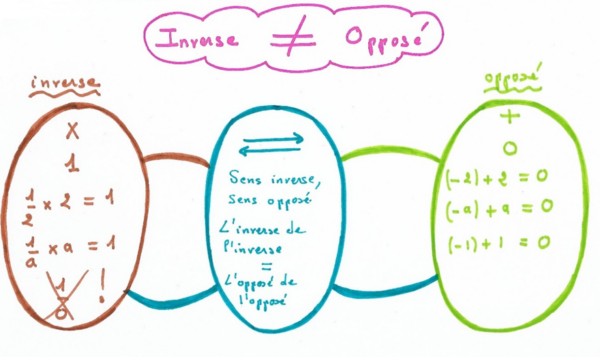 Inverse ≠ Opposé
inverse
×
1
1/2 × 2 = 1
1/a × a = 1
1/0 !
Sens inverse,
Sens opposé
L'inverse de
l'inverse
=
L'opposé de
l'opposé
opposé
+
0
(-2) + 2 = 0
(-a) + a = 0
(-1) + 1 = 0